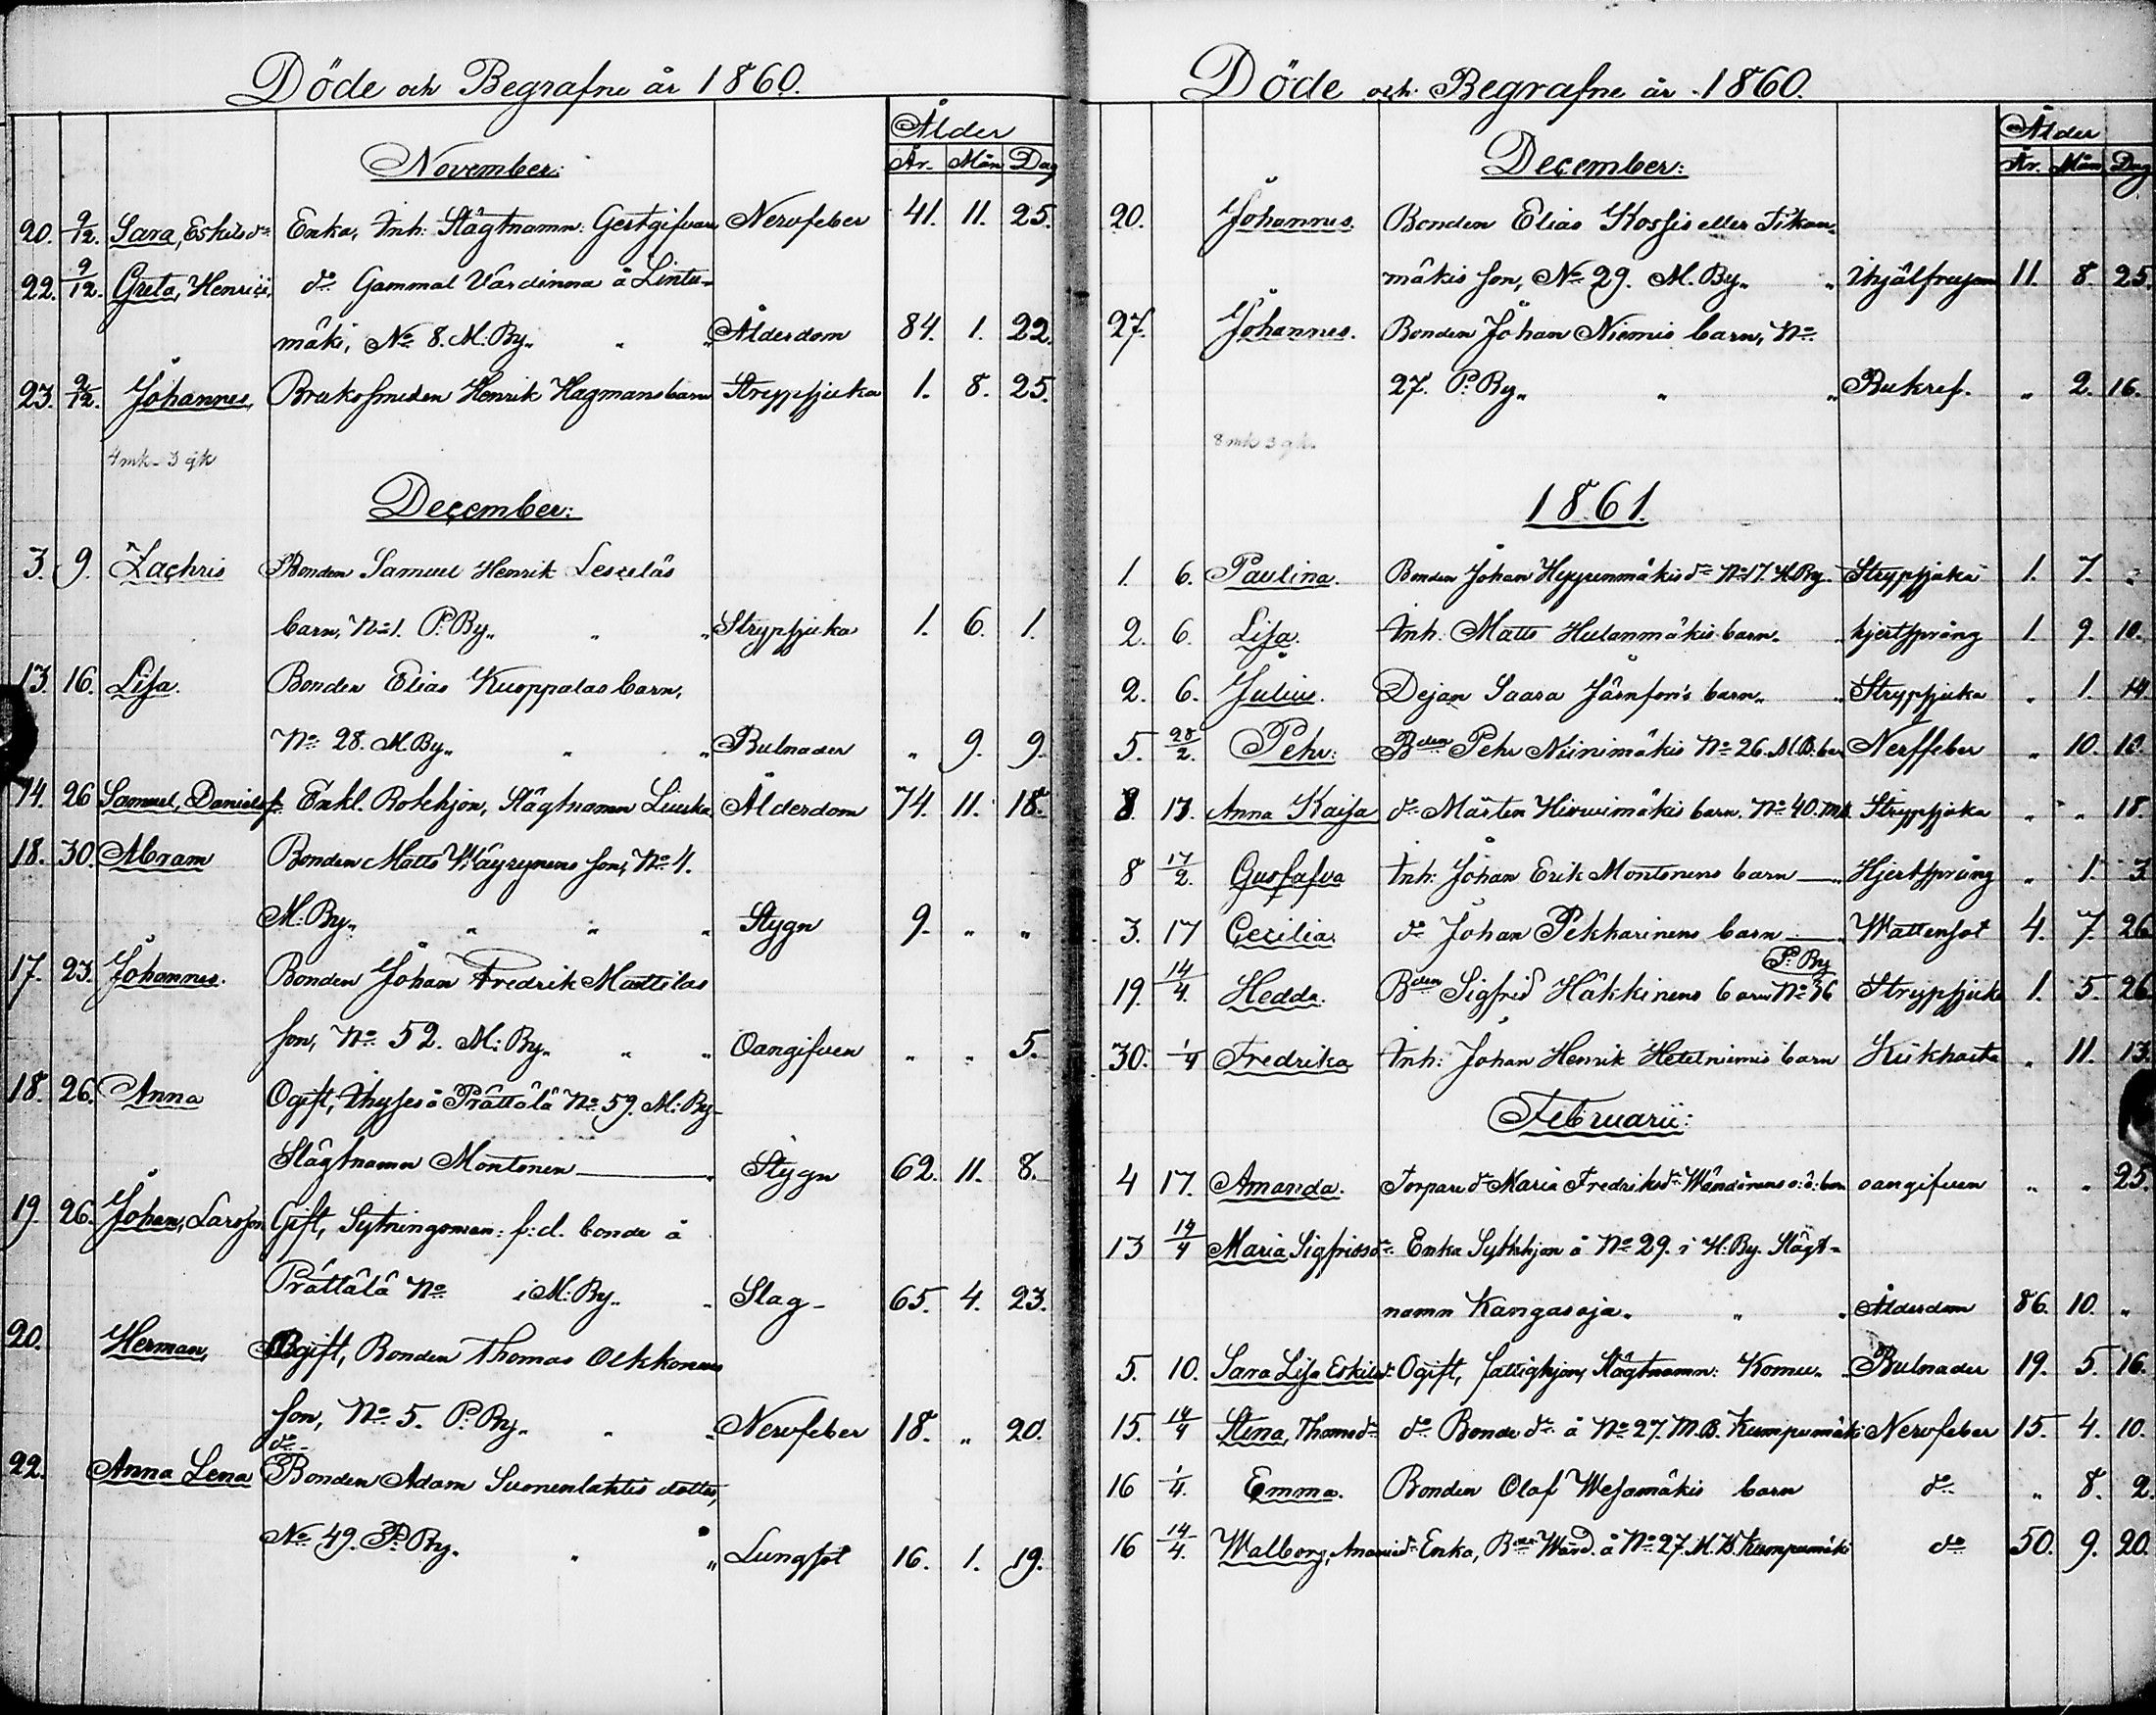 Döde och Begrafne år 1860.
Ålder
November:
År. Mån Dag
20. 9/12. Sara, Eskilsdr Enka, Inh: Slägtnamn: Gestgifvare Nervfeber 41. 11. 25.
22. 9/12. Greta, Henrici, do Gammal Värdinna å Lintu-
mäki, No 8. M: By „ „ „ Ålderdom 84. 1. 22.
23. 9/12. Johannes, Bruksmeden Henrik Hagmans barn Strypsjuka 1. 8. 25.
4 mk - 3 qk
December:
3. 9. Zachris Bonden Samuel Henrik Lesceläs
barn, No 1. P: By „ „ „ Strypsjuka 1. 6. 1.
13. 16. Lisa. Bonden Elias Kuoppalas barn,
No 28. M By „ „ „ Bulnader „ 9. 9.
14. 26 Samuel, Danielss. Enkl. Rotehjon, Slägtnamn Liuska Ålderdom 74. 11. 18.
18. 30. Abram Bonden Matts Wäyrynens son, No 4.
M: By „ „ „ „ Stygn 9. „ „
17. 23. Johannes. Bonden Johan Fredrik Mattilas
son, No 52. M: By „ „ „ Oangifven „ „ 5.
18. 26. Anna Ogift, Inhyses å Prättälä No 59. M: By
Slägtnamn Montonen „ Stygn 62. 11. 8.
19. 26. Johan, Larsson Gift, Sytningsman: f: d. bonde å
Prättälä No i M: By „ „ Slag 65. 4. 23.
20. Herman, Ogift, Bonden Thomas Oikkonens
son, No 5. P: By „ „ „ Nervfeber 18. „ 20.
do
22. Anna Lena Bonden Adam Suonenlahtis dotter,
No 49. P: By. „ „ Lungsot 16. 1. 19.
Döde och Begrafne år 1860.
Ålder
December:
År. Mån Dag
20. Johannes. Bonden Elias Kossis eller Tikan-
mäkis son, No 29. M. By „ „ Ihjälfrusen 11. 8. 25.
27. Johannes. Bonden Johan Niemis barn, No
27. P: By „ „ „ Bukref. „ 2. 16.
8 mk 3 qk.
1861.
1. 6. Paulina. Bonden Johan Hyyrenmäkis dr No 17. H. By. Strypsjuka 1. 7. „
2. 6. Lisa. Inh: Matts Hulanmäkis barn „ hjertsprång 1. 9. 10.
2. 6. Julius. Dejan Saara Järnfors barn „ „ Strypsjuka „ 1. 14.
5. 28/2. Pehr: Bden Pehr Niinimäkis No 26. M. B. bar Nerffeber „ 10. 10.
8. 13. Anna Kaisa do Mårten Hirvimäkis barn. No 40. MB. Strypsjuka „ „ 18.
8 17/2. Gustafva Inh: Johan Erik Montonens barn „ Hjertsprång „ 1. 3
3. 17 Cecilia. do Johan Pekkarinens barn „ Wattensot 4. 7. 26
P: By
19. 14/4. Hedda. Bden Sigfrid Häkkinens barn No 36 Strypsjuka 1. 5. 26
30. 1/4 Fredrika Inh: Johan Henrik Hetelniemis barn Kikhosta „ 11. 13.
Februarii:
4 17. Amanda. Torpare dr Maria Fredriksdr Wänänens o: ä: barn oangifven „ „ 25.
13 14/4 Maria Sigfridsdr Enka Sythjon å No 29. i H: By. Slägt-
namn Kangasoja „ „ „ Ålderdom 86. 10. „
5. 10. Sara Lisa Eskilsdr Ogift, fattighjon, Slägtnamn: Komu „ Bulnader 19. 5. 16.
15. 14/4 Stina, Thomsdr do Bonde dr å No 27. M. B. Kumpumäki Nervfeber 15. 4. 10.
16 1/4. Emma. Bonden Olaf Wesamäkis barn do „ 8. 2.
16 14/4. Walborg, Ananiedr Enka, Bden Wärd. å No 27. M. B. Kumpumäki do 50. 9. 20.